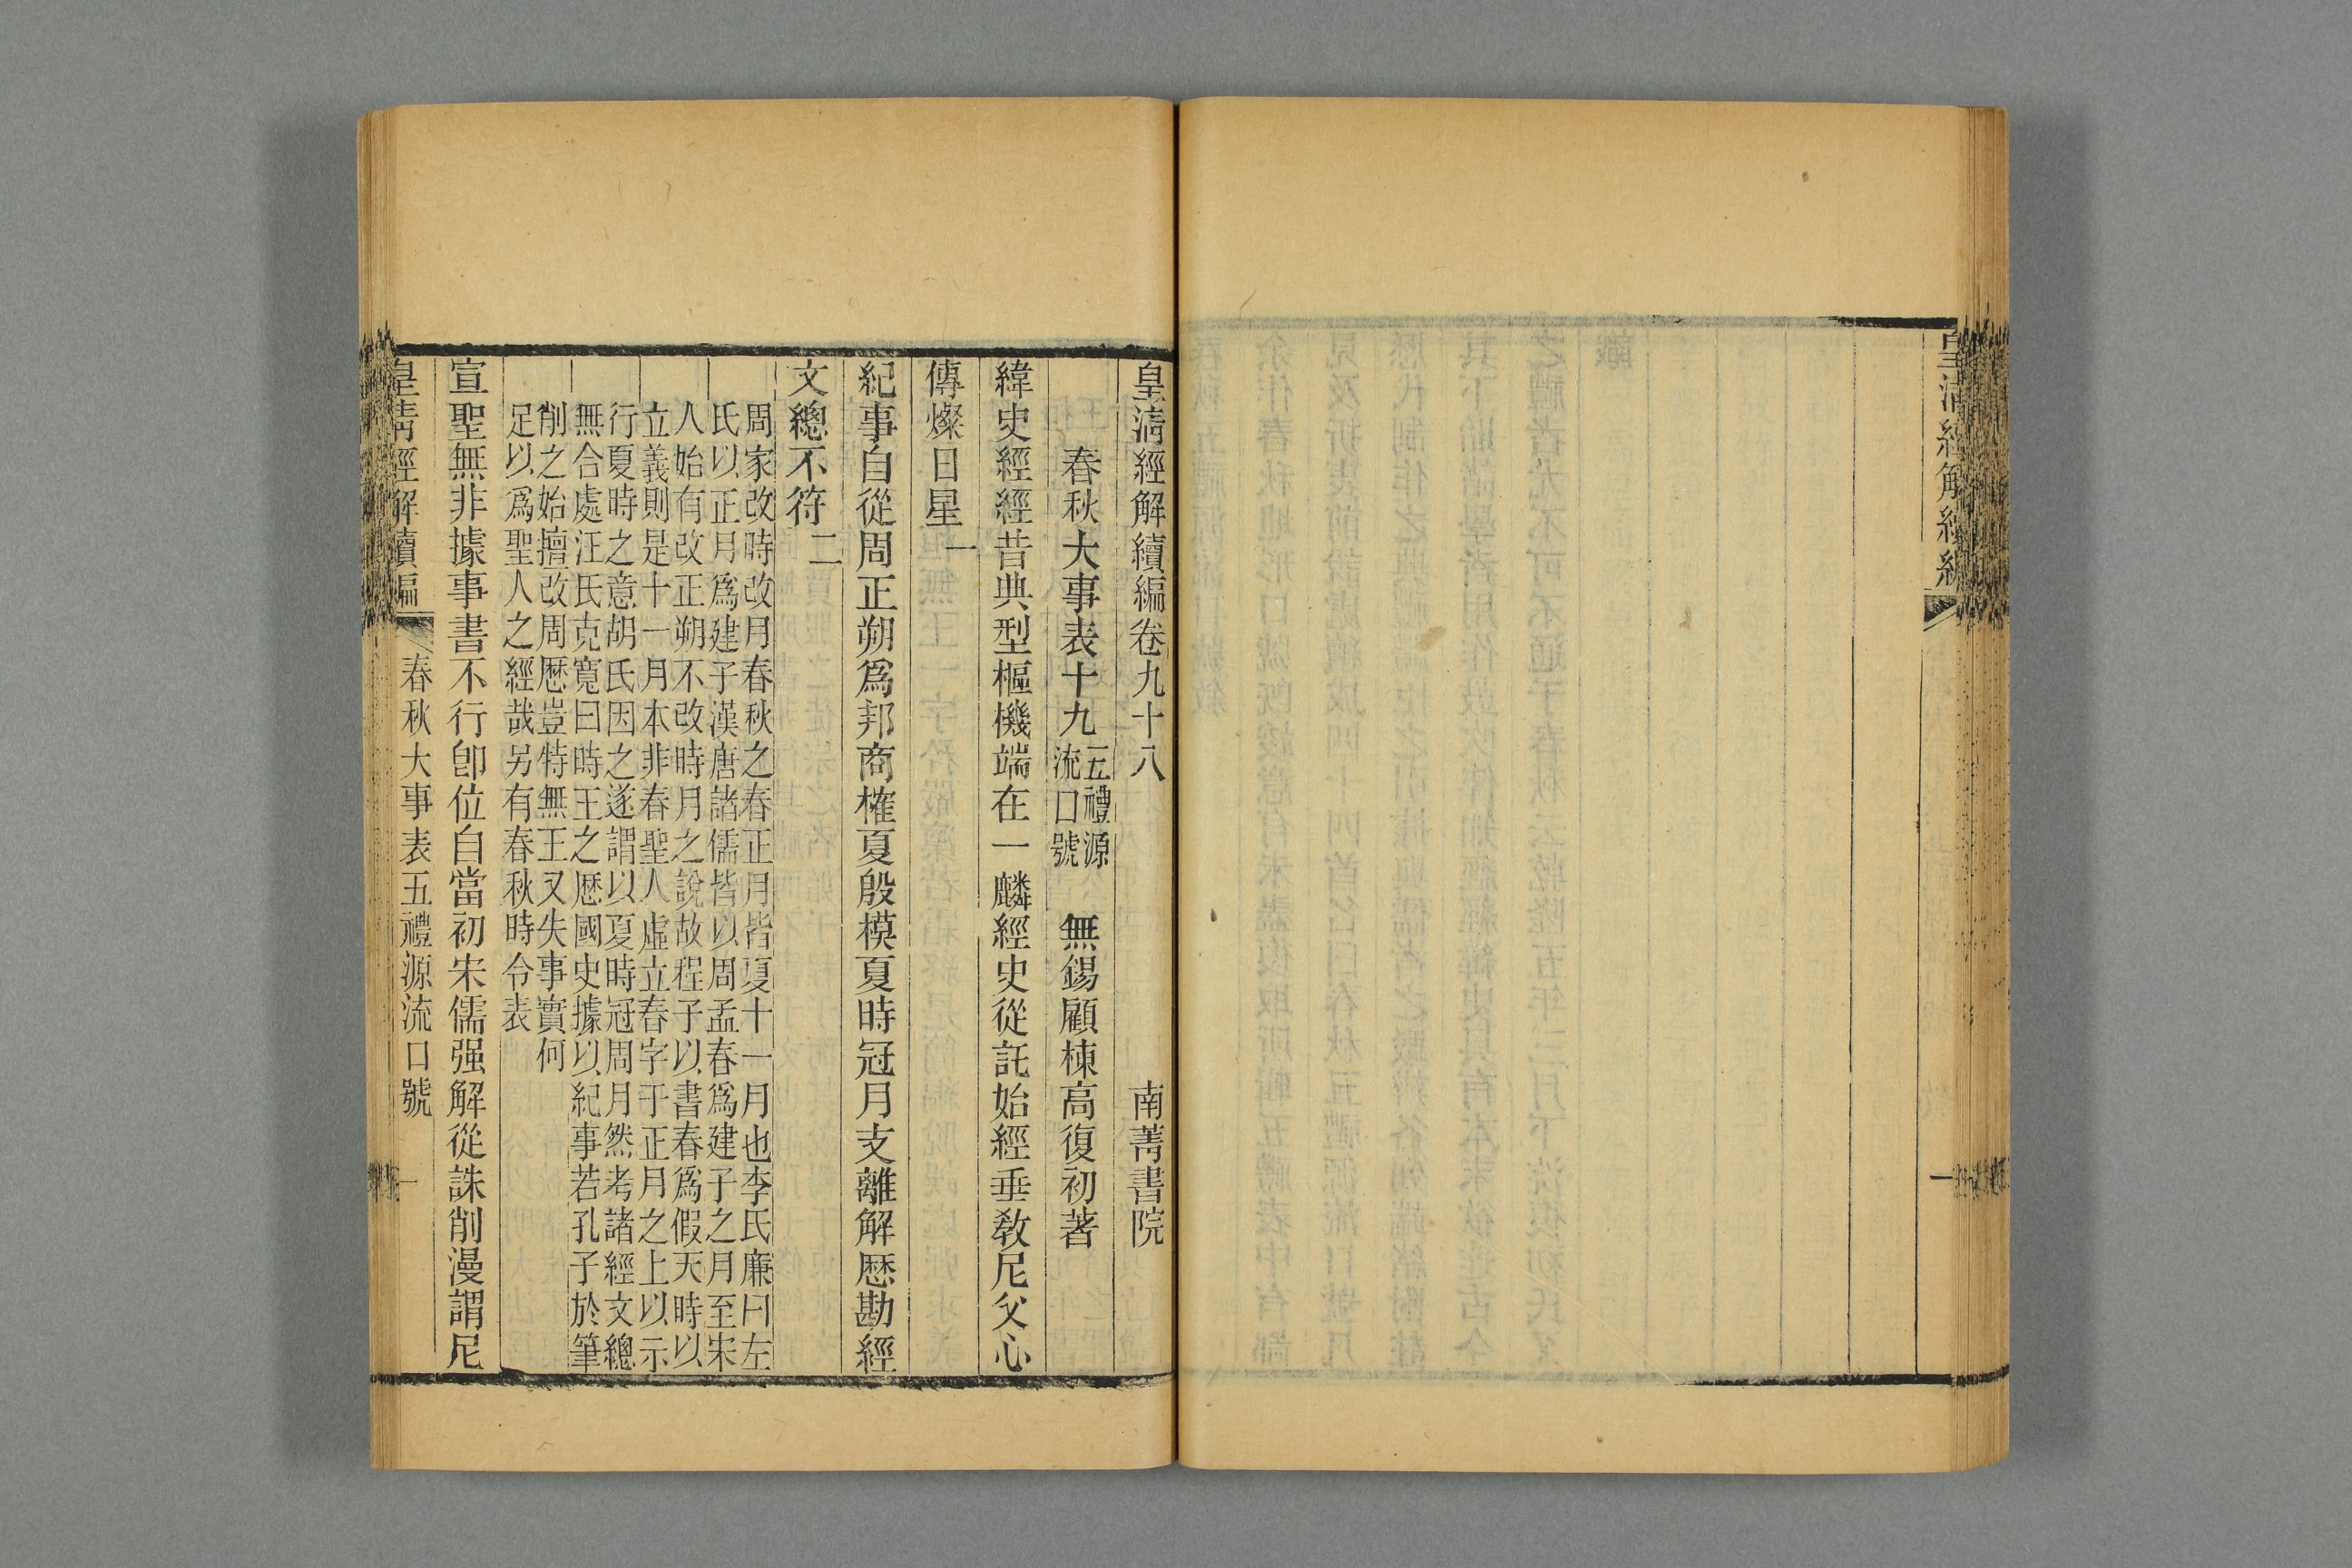 皇清經解續編
一
皇清經解續編卷九十八 南菁書院
春秋大事表十九 五禮源流口號 無錫顧棟高復初著
緯史經經昔典型樞機端在一麟經史從託始經垂教尼父心
傳燦日星一
紀事自從周正朔爲邦商榷夏殷模夏時冠月支離解歷勘經
文總不符二
周家改時改月春秋之春正月皆夏十一月也李氏廉曰左
氏以正月爲建子漢唐諸儒皆以周孟春爲建子之月至宋
人始有改正朔不改時月之說故程子以書春爲假天時以
立義則是十一月本非春聖人虛立春字于正月之上以示
行夏時之意胡氏因之遂謂以夏時冠周月然考諸經文總
無合處汪氏克寬曰時王之歷國史據以紀事若孔子於筆
削之始擅改周歷豈特無王又失事實何
足以爲聖人之經哉另有春秋時令表
宣聖無非據事書不行卽位自當初宋儒强解從誅削漫謂尼
皇清經解續編 春秋大事表五禮源流口號 一